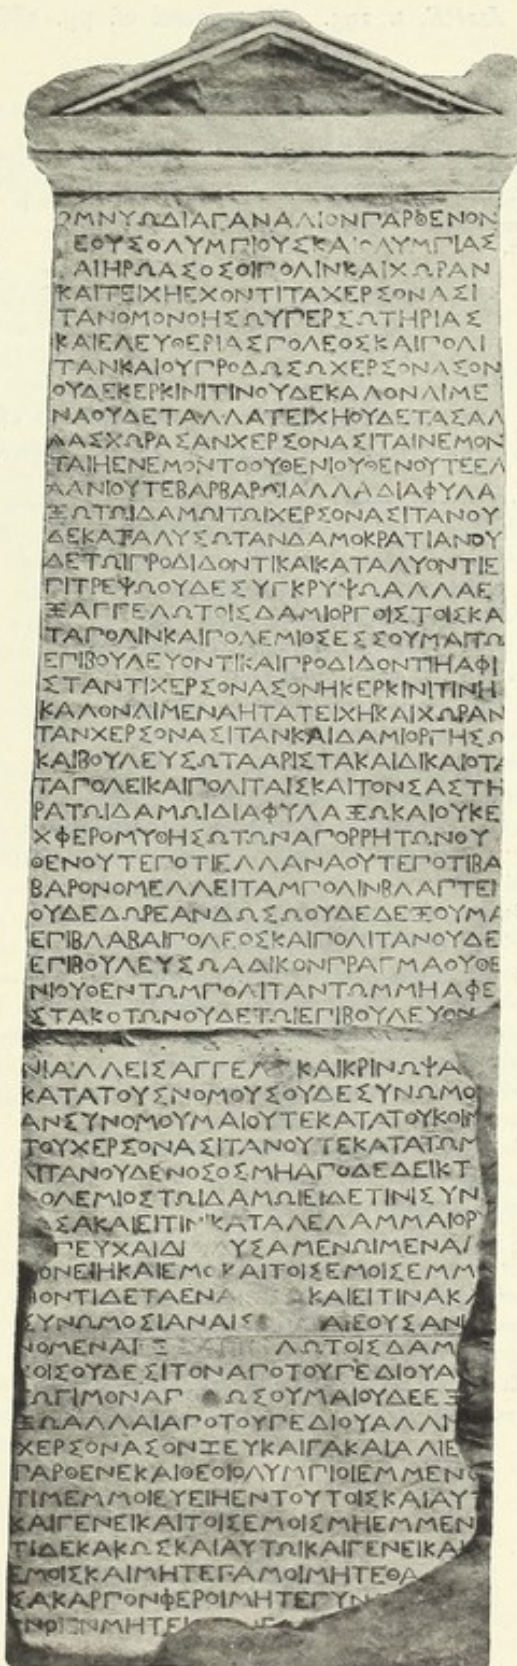 ΟΜΝΥΩΔΙΑΓΑΝΑΛΙΟΝΠΑΡΘΕΝΟΝ
ΕΟΥΣΟΛΥΜΠΙΟΥΣΚΑΙΟΛΥΜΠΙΑΣ
ΑΙΗΡΩΑΣΟΣΟΙΠΟΛΙΝΚΑΙΧΩΡΑΝ
ΚΑΙΤΕΙΧΗΕΧΟΝΤΙΤΑΧΕΡΣΟΝΑΣΙ
ΤΑΝΟΜΟΝΟΗΣΩΥΠΕΡΣΩΤΗΡΙΑΣ
ΚΑΙΕΛΕΥΘΕΡΙΑΣΠΟΛΕΟΣΚΑΙΠΟΛΙ
ΤΑΝΚΑΙΟΥΠΡΟΔΩΣΩΧΕΡΣΟΝΑΣΟΝ
ΟΥΔΕΚΕΡΚΙΝΙΤΙΝΟΥΔΕΚΑΛΟΝΛΙΜΕ
ΝΑΟΥΔΕΤΑΛΛΑΤΕΙΧΗΟΥΔΕΤΑΣΑΛ
ΛΑΣΧΩΡΑΣΑΝΧΕΡΣΟΝΑΣΙΤΑΙΝΕΜΟΝ
ΤΑΙΗΕΝΕΜΟΝΤΟΟΥΘΕΝΙΟΥΘΕΝΟΥΤΕΕΛ
ΛΑΝΙΟΥΤΕΒΑΡΒΑΡΩΙΑΛΛΑΔΙΑΦΥΛΑ
ΞΩΤΩΙΔΑΜΩΙΤΩΙΧΕΡΣΟΝΑΣΙΤΑΝΟΥ
ΔΕΚΑΤΑΛΥΣΩΤΑΝΔΑΜΟΚΡΑΤΙΑΝΟΥ
ΔΕΤΩΙΠΡΟΔΙΔΟΝΤΙΚΑΙΚΑΤΑΛΥΟΝΤΙΕ
ΠΙΤΡΕΨΩΟΥΔΕΣΥΓΚΡΥΨΩΑΛΛΑΕ
ΞΑΓΓΕΛΩΤΟΙΣΔΑΜΙΟΡΓΟΙΣΤΟΙΣΚΑ
ΤΑΠΟΛΙΝΚΑΙΠΟΛΕΜΙΟΣΕΣΣΟΥΜΑΙΤΩ
ΕΠΙΒΟΥΛΕΥΟΝΤΙΚΑΙΠΡΟΔΙΔΟΝΤΙΗΑΦΙ
ΣΤΑΝΤΙΧΕΡΣΟΝΑΣΟΝΗΚΕΡΚΙΝΙΤΙΝΗ
ΚΑΛΟΝΛΙΜΕΝΑΗΤΑΤΕΙΧΗΚΑΙΧΩΡΑΝ
ΤΑΝΧΕΡΣΟΝΑΣΙΤΑΝΚΑΙΔΑΜΙΟΡΓΗΣΩ
ΚΑΙΒΟΥΛΕΥΣΩΤΑΑΡΙΣΤΑΚΑΙΔΙΚΑΙΟΤΑ
ΤΑΠΟΛΕΙΚΑΙΠΟΛΙΤΑΙΣΚΑΙΤΟΝΣΑΣΤΗ
ΡΑΤΩΙΔΑΜΩΙΔΙΑΦΥΛΑΞΩΚΑΙΟΥΚΕ
ΧΦΕΡΟΜΥΘΗΣΩΤΩΝΑΠΟΡΡΗΤΩΝΟΥ
ΘΕΝΟΥΤΕΠΟΤΙΕΛΛΑΝΑΟΥΤΕΠΟΤΙΒΑ
ΒΑΡΟΝΟΜΕΛΛΕΙΤΑΜΠΟΛΙΝΒΛΑΠΤΕΙ
ΟΥΔΕΔΩΡΕΑΝΔΩΣΩΟΥΔΕΔΕΞΟΥΜΑ
ΕΠΙΒΛΑΒΑΙΠΟΛΕΟΣΚΑΙΠΟΛΙΤΑΝΟΥΔΕ
ΕΠΙΒΟΥΛΕΥΣΩΑΔΙΚΟΝΠΡΑΓΜΑΟΥΘΕ
ΝΙΟΥΘΕΝΤΩΜΠΟΛΙΤΑΝΤΩΜΜΗΑΦΕ
ΣΤΑΚΟΤΩΝΟΥΔΕΤΩΙΕΠΙΒΟΥΛΕΥΟΝ
ΝΙΑΛΛΕΙΣΑΓΓΕΛ ΚΑΙΚΡΙΝΩΨΑ
ΚΑΤΑΤΟΥΣΝΟΜΟΥΣΟΥΔΕΣΥΝΩΜΟ
ΑΝΣΥΝΟΜΟΥΜΑΙΟΥΤΕΚΑΤΑΤΟΥΚΟΙΝ
ΤΟΥΧΕΡΣΟΝΑΣΙΤΑΝΟΥΤΕΚΑΤΑΤΩΜ
ΛΙΤΑΝΟΥΔΕΝΟΣΟΣΜΗΑΠΟΔΕΔΕΙΚΤ
ΟΛΕΜΙΟΣΤΩΙΔΑΜΩΙΕΙΔΕΤΙΝΙΣΥΝ
ΣΑΚΑΙΕΙΤΙΝΙΚΑΤΑΛΕΛΑΜΜΑΙΟΡ
ΠΕΥΧΑΙΔΙ ΥΣΑΜΕΝΩΙΜΕΝΑ
ΟΝΕΙΗΚΑΙΕΜΟ ΚΑΙΤΟΙΣΕΜΟΙΣΕΜΜ
ΟΝΤΙΔΕΤΑΕΝΑ ΚΑΙΕΙΤΙΝΑΚΑ
ΣΥΝΩΜΟΣΙΑΝΑΙΣ ΑΙΕΟΥΣΑΝ
ΝΟΜΕΝΑΙ Ξ ΛΩΤΟΙΣΔΑΜ
ΟΙΣΟΥΔΕΣΙΤΟΝΑΠΟΤΟΥΠΕΔΙΟΥΑ
ΩΓΙΜΟΝΑΠ ΩΣΟΥΜΑΙΟΥΔΕΕΞ
ΞΩΑΛΛΑΙΑΠΟΤΟΥΠΕΔΙΟΥΑΛΛΙ
ΧΕΡΣΟΝΑΣΟΝΖΕΥΚΑΙΓΑΚΑΙΑΛΙΕ
ΠΑΡΘΕΝΕΚΑΙΘΕΟΙΟΛΥΜΠΙΟΙΕΜΜΕΝΟ
ΤΙΜΕΜΜΟΙΕΥΕΙΗΕΝΤΟΥΤΟΙΣΚΑΙΑΥΤ
ΚΑΙΓΕΝΕΙΚΑΙΤΟΙΣΕΜΟΙΣΜΗΕΜΜΕΝ
ΤΙΔΕΚΑΚΩΣΚΑΙΑΥΤΩΙΚΑΙΓΕΝΕΙΚΑΙ
ΕΜΟΙΣΚΑΙΜΗΤΕΓΑΜΟΙΜΗΤΕΘΑ
ΣΑΚΑΡΠΟΝΦΕΡΟΙΜΗΤΕΓΥΝ
ΜΗΤΕ